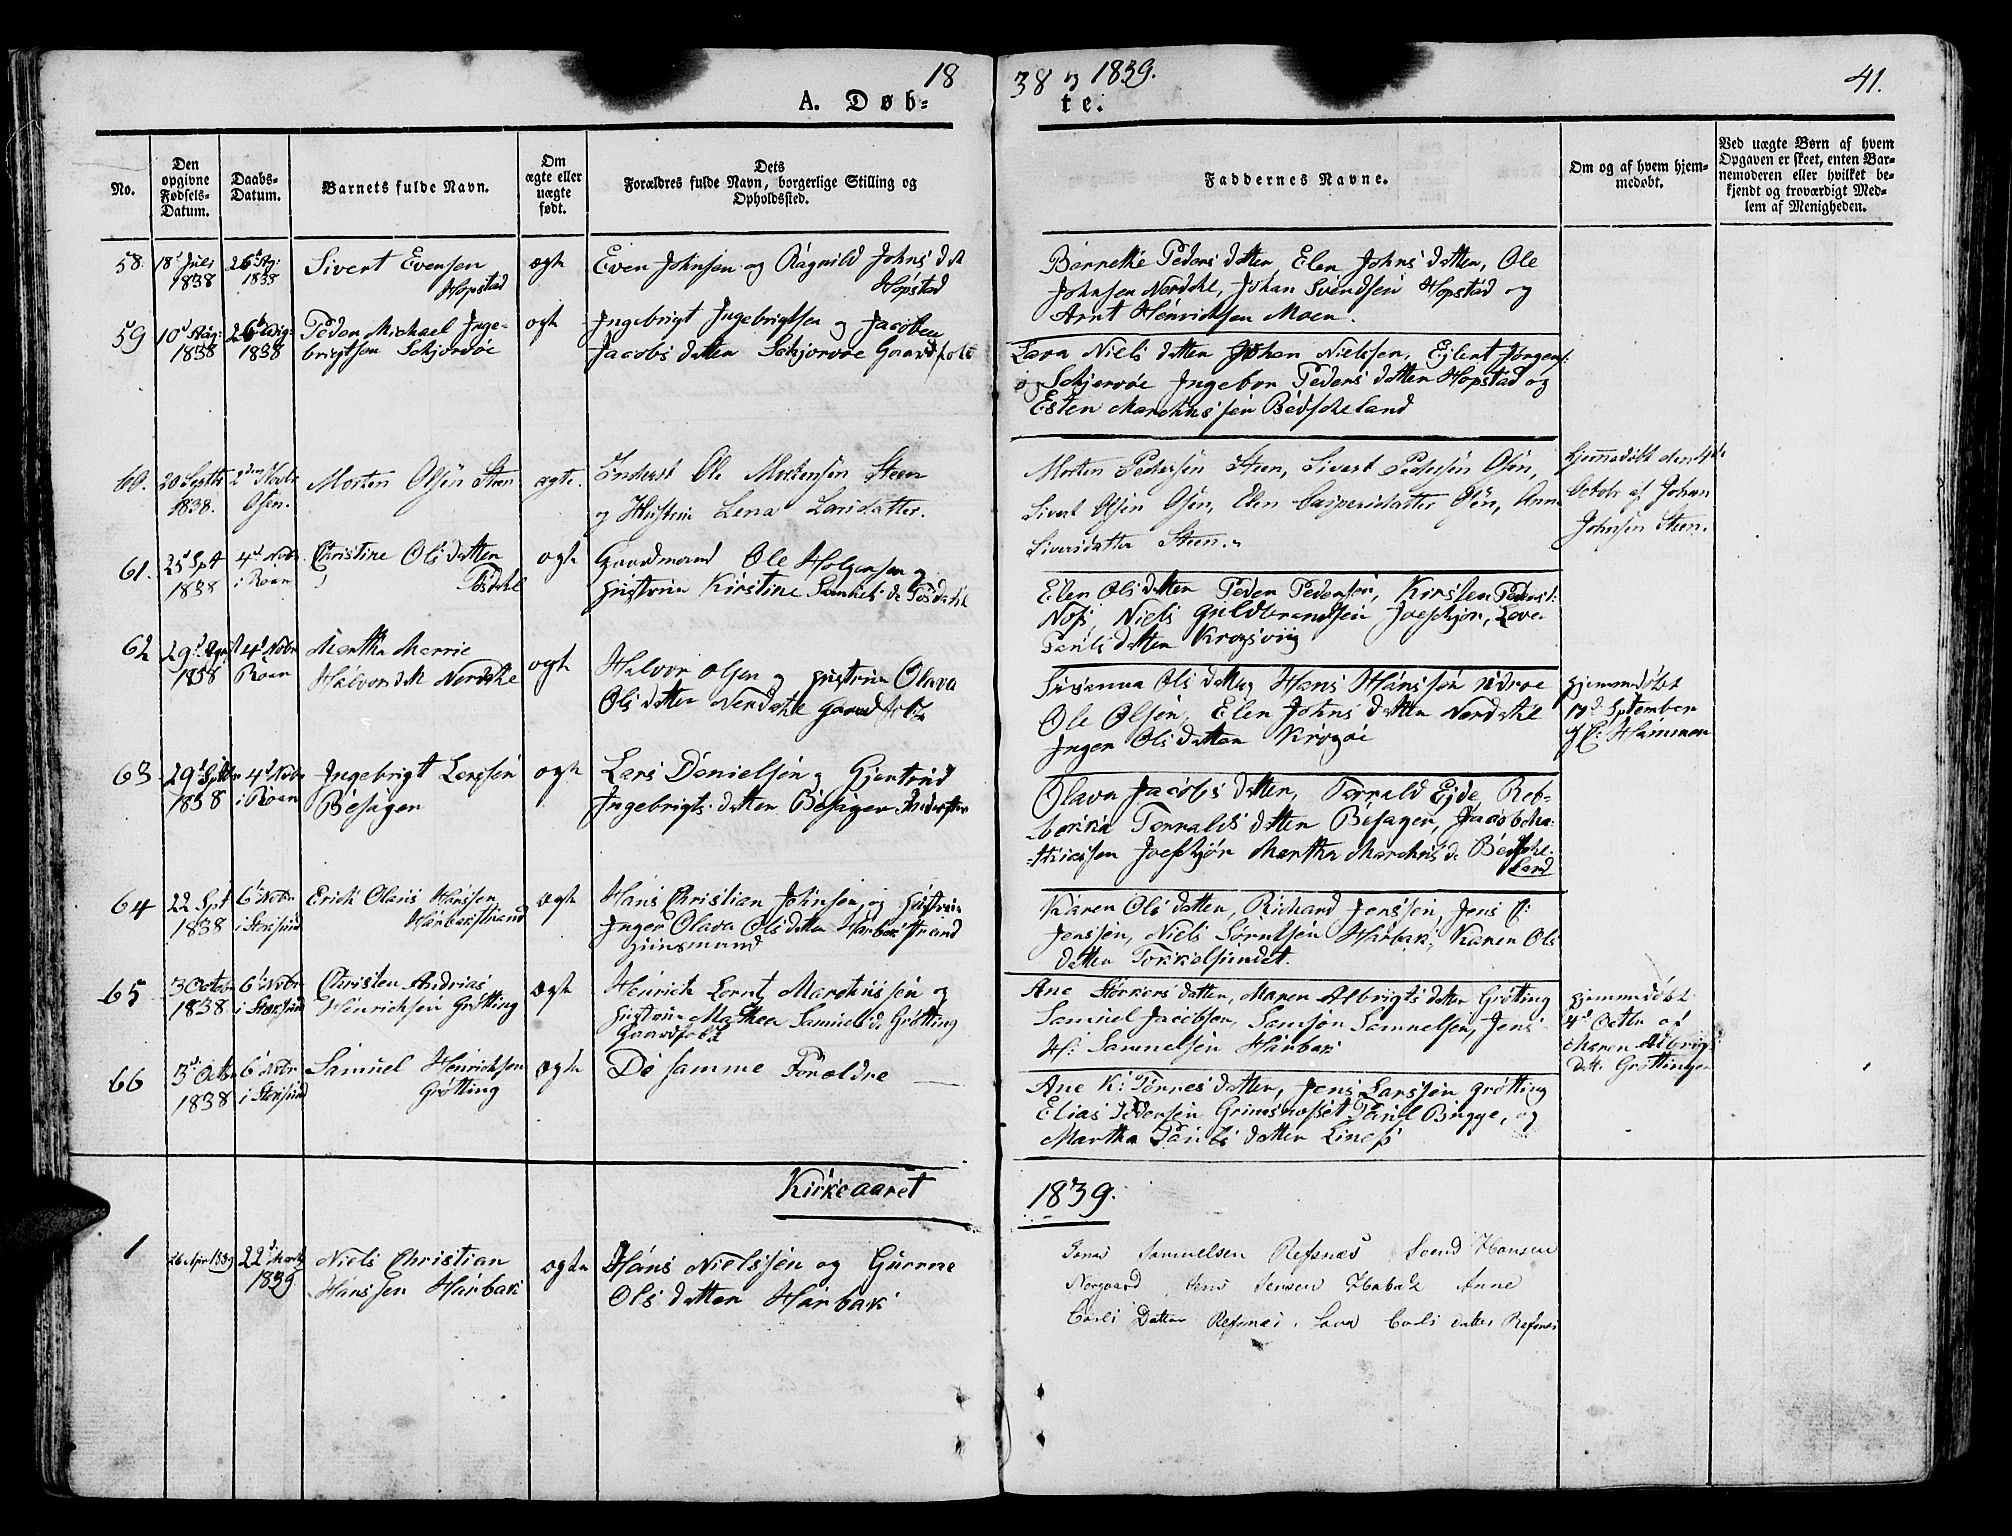 18
38 og 1839.
41.
A. Døb-
te.
No.
Den
opgivne
Fødsels-
Datum.
Daabs-
Datum.
Barnets fulde Navn.
Om
ægte eller
uægte
født.
Dets
Forældres fulde Navn, borgerlige Stilling og
Opholdssted.
Faddernes Navne.
Om og af hvem hjem-
medøbt.
Ved uægte Børn af hvem
Opgaven er skeet, enten Bar-
nemoderen eller hvilket be-
kjendt og troværdigt Med-
lem af Menigheden.
58
18d Juli
1838
26d Ag:
1838
Sivert Evensen
Hopstad
ægte
Even Johnsen og Ragnild Johns dat
Hopstad
Barnethe Peders datter, Elen Johns datter, Ole
Johnsen Nordahl, Johan Svendsen Hopstad og
Arnt Henricksen Moen.
59
10d Aug:
1838
26d Aug:
1838
Peder Michael Inge-
brigtsen Schjervøe
ægte
Ingebrigt Ingebrigtsen og Jacobea
Jacobs datter Schjervøe Gaardfolk
Lava Niels datter Johan Nielssen, Ejlert Jørgens:
og Schjervøe Ingebor Peders datter Hopstad og
Esten Marchussen Bedscheland
60.
20 Septbr
1838.
2den Novbr
Osen.
Morten Olsen Steen
ægte.
Inderst Ole Mortensen Steen
og Hustrue Lena Larsdatter.
Morten Pedersen Steen, Sivert Pedersen Osen,
Sivert Olsen Osen, Elen Caspersdatter Osen, Anne
Siversdatter Steen.
Hjemmedøbt den 4de
Octobr af Johan
Johnsen Steen.
61.
25d Spt
1838
4d Nvbr
i Roan
Christine Ols datter
ægte
Gaardmand Ole Holgersen og
Hustrue Kirstine
Elen Ols datter Peder Pedersen, Kirsten Peders d:
Niels Guldbrandsen Joefschjør, Lava
Pauls datter Krogsvig
62
1838
4d Novbr
Roan
Martha Marrie
Halvor datt Nordahl
ægte
Halvor Olsen og Hustrue Olava
Ols datter Nordahl Gaardfolk
Susanna Ols datter Hans Hanssen
Ole Olsen, Elen Johns datter Nordahl
Inger Ols datter Krogøe
Hjemmedøbt
17d September
af C: Hammer
63
29d Septbr
1838
4d Novbr
i Roan
Ingebrigt Larssen
Besager
ægte
Lars Danielsen og Gjertrud
Ingebrigts datter Besager Inderster
Olava Jacobs datter, Torrald Ejde, Reb-
bekka Torralds datter Besager, Jacob Ma-
thiassen Joefschjør Martha Marchus d: Bedsche-
land
64
22 Spt
1838
6d Novbr
i Stoksund
Erick Olaus Hanssen
Harbakstrand
ægte
Hans Christian Johnsen, og Hustrue
Inger Olava Ols datter Harbakstrand
Huusmand
Karen Ols datter, Richard Jenssen, Jens C:
Jenssen, Niels Sørentsen Harbak, Karen Ols
datter Tokkelsundet.
65
3 October
1838
6d Novbr
i Stoksund
Christen Andrias
Henricksen Grøtting
ægte
Henrich Lornts Marchussen og
Hustrue Mathea Samuels d: Grøtting
Gaardfolk
Ane Størkers datter, Maren Albrigts datter Grøtting
Samuel Jacobsen, Samson Samuelsen, Jens
H: Samuelsen Harbak
Hjemmedøbt
4d Octbr af
Maren Albrigts
datt. Grøttingen
66
3d Octbr
1838
6d Novbr
i Stoksund
Samuel Henricksen
Grøtting
ægte
De samme Forældre
Ane K: Tørres datter, Jens Larssen Grøtting
Elias Pedersen Grimsnesset Paul Bugge, og
Martha Pauls datter Lines
Kirkeaaret
1839.
1
1839
22d Marts
1839
Niels Christian
Hanssen Harbak
ægte
Hans Nielssen og Gurine
Ols datter Harbak
Jonas Samuelsen Refsnæs Svend Hansen
Norgaard, Jens Jensen Habak Anne
Carls Datter Refsnæs. Lava Carls datter Refsnæs